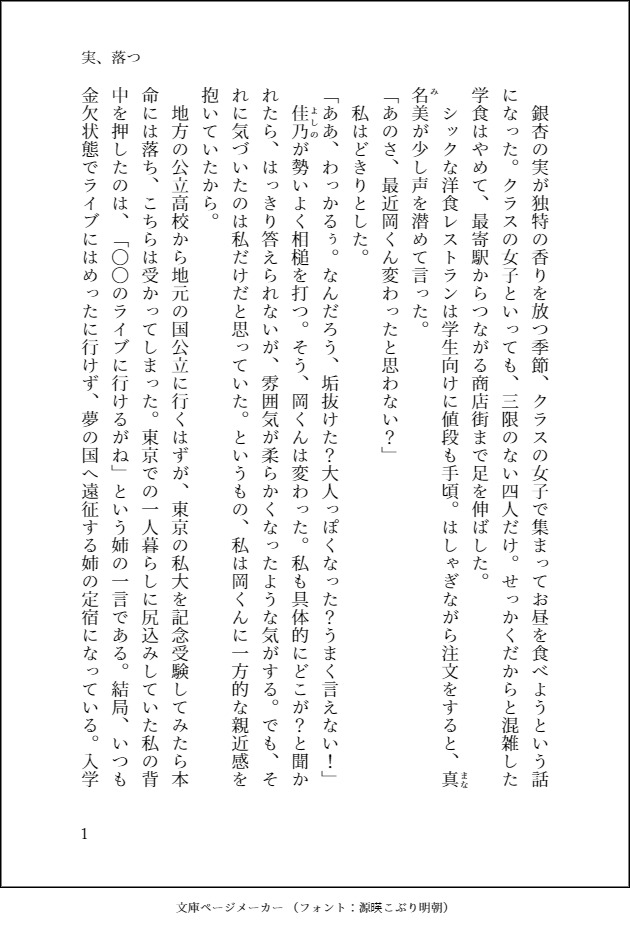 実、落つ
銀杏の実が独特の香りを放つ季節、クラスの女子で集まってお昼を食べようという話
になった。クラスの女子といっても、三限のない四人だけ。せっかくだからと混雑した
学食はやめて、最寄駅からつながる商店街まで足を伸ばした。
シックな洋食レストランは学生向けに値段も手頃。はしゃぎながら注文をすると、真
名美が少し声を潜めて言った。
「あのさ、最近岡くん変わったと思わない？」
私はどきりとした。
「ああ、わっかるぅ。なんだろう、垢抜けた？大人っぽくなった？うまく言えない！」
佳乃が勢いよく相槌を打つ。そう、岡くんは変わった。私も具体的にどこが？と聞か
れたら、はっきり答えられないが、雰囲気が柔らかくなったような気がする。でも、そ
れに気づいたのは私だけだと思っていた。というもの、私は岡くんに一方的な親近感を
抱いていたから。
地方の公立高校から地元の国公立に行くはずが、東京の私大を記念受験してみたら本
命には落ち、こちらは受かってしまった。東京での一人暮らしに尻込みしていた私の背
中を押したのは、「〇〇のライブに行けるがね」という姉の一言である。結局、いつも
金欠状態でライブにはめったに行けず、夢の国へ遠征する姉の定宿になっている。入学
1
文庫ページメーカー（フォント：源暎こぶり明朝）